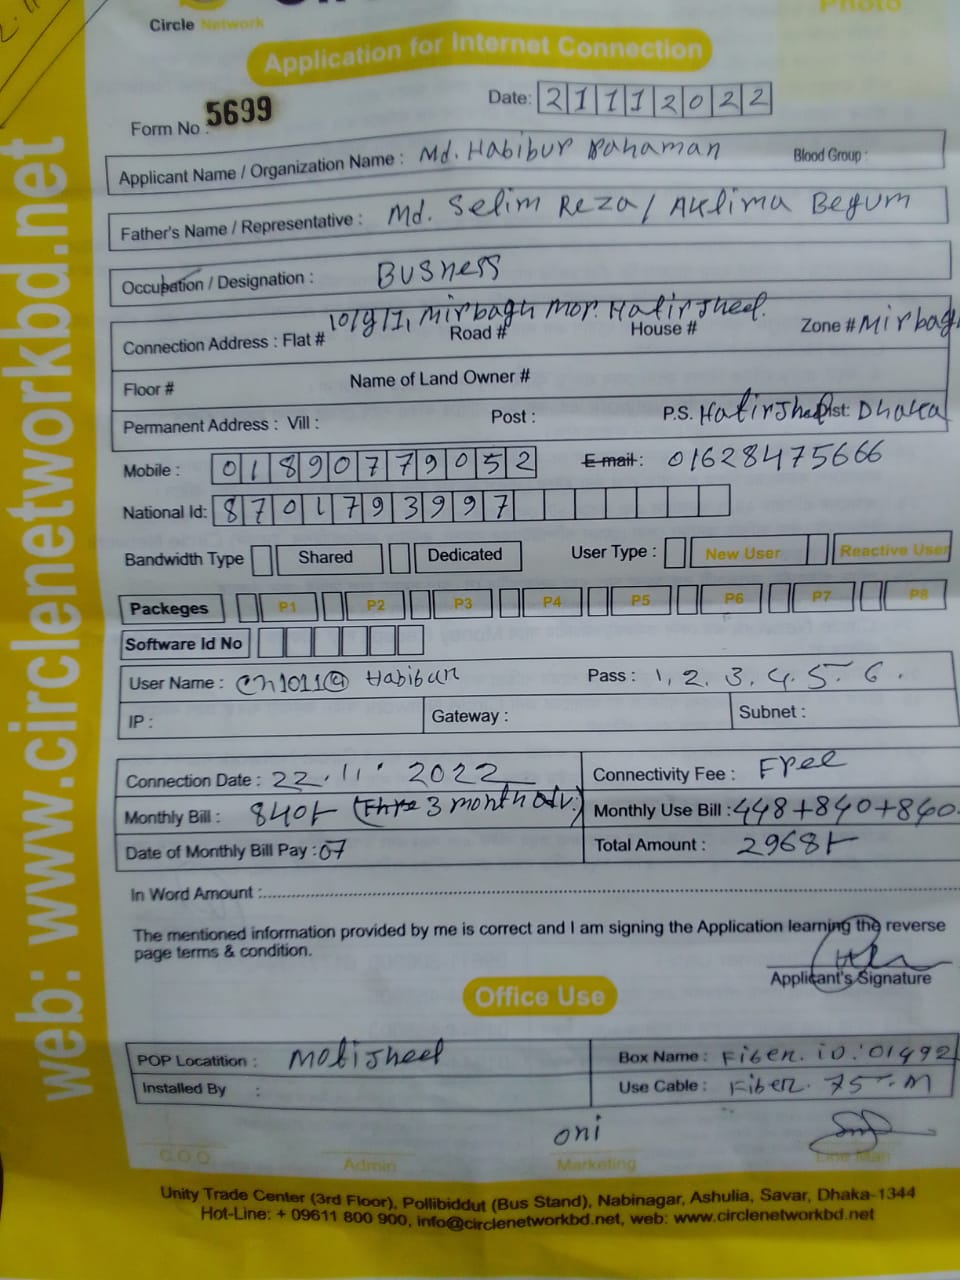 Circle Network
Photo
Application for Internet Connection
Form No : 5699
Date: 21112022
Applicant Name / Organization Name : Md. Habibur Rahaman Blood Group :
Father's Name / Representative : Md. Selim Reza / Aklima Begum
Occupation / Designation : Busness
Connection Address : Flat # 10/9/1, Mirbagh Mor. HatirJheel. Road # House # Zone # Mirbag
Floor # Name of Land Owner #
Permanent Address : Vill : Post : P.S. HatirJheel Dist: Dhaka
Mobile : 01890779052 E-mail : 01628475666
National Id: 8701793997
Bandwidth Type Shared Dedicated User Type : New User Reactive User
Packeges P1 P2 P3 P4 P5 P6 P7 P8
Software Id No
User Name : Habibur Pass : 1, 2. 3. 4. 5. 6.
IP : Gateway : Subnet :
Connection Date : 22.11.2022 Connectivity Fee : Free
Monthly Bill : 840/- (3 month adv.) Monthly Use Bill : 448+840+840
Date of Monthly Bill Pay : 07 Total Amount : 2968/-
In Word Amount :
The mentioned information provided by me is correct and I am signing the Application learning the reverse
page terms & condition.
Applicant's Signature
Office Use
POP Locatition : MotiJheel Box Name : Fiber. iD: 01492
Installed By : Use Cable : Fiber. 75 M
oni
C.O.O. Admin Marketing Line Man
Unity Trade Center (3rd Floor), Pollibiddut (Bus Stand), Nabinagar, Ashulia, Savar, Dhaka-1344
Hot-Line: + 09611 800 900, info@circlenetworkbd.net, web: www.circlenetworkbd.net
web: www.circlenetworkbd.net